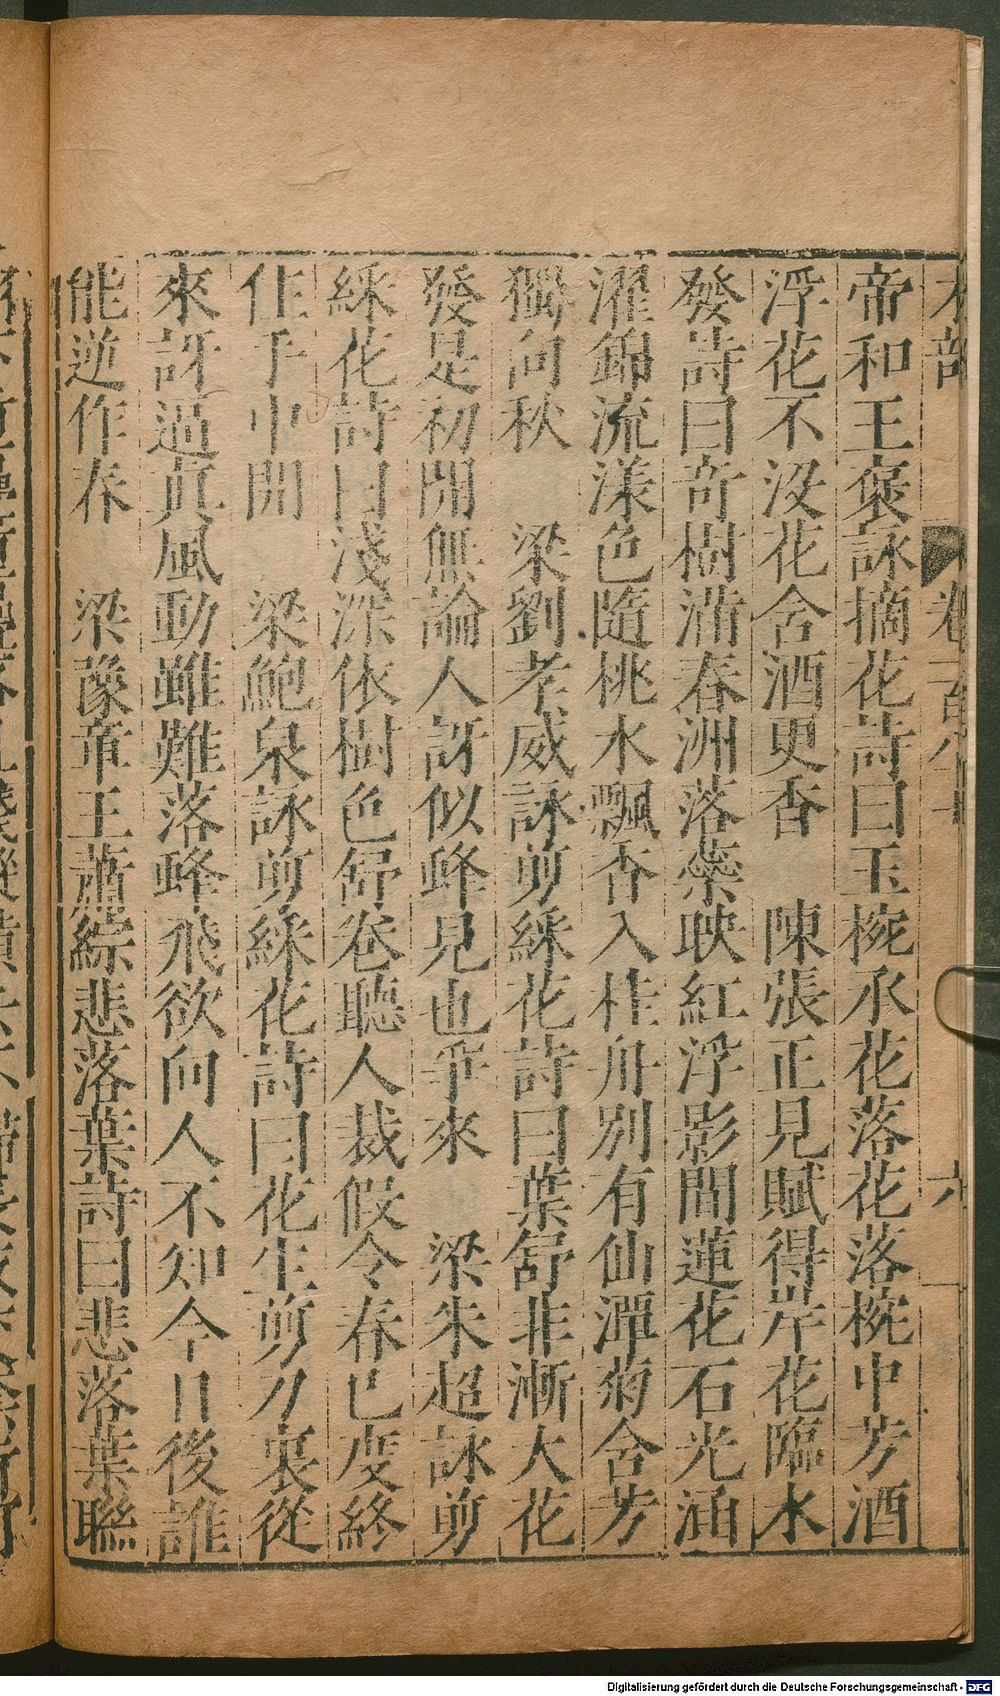 木部　卷一百八十　六
帝和王褒詠摘花詩曰玉椀承花落花落椀中芳酒
浮花不沒花含酒更香　陳張正見賦得岸花臨水
發詩曰奇樹滿春洲落蘂映紅浮影間蓮花石光涵
濯錦流漾色隨桃水飄香入桂舟別有仙潭菊含芳
獨向秋　梁劉孝威詠剪綵花詩曰葉舒非漸大花
發是初開無論人訝似蜂見也爭來　梁朱超詠剪
綵花詩曰淺深依樹色舒卷聽人裁假令春已度終
住手中開　梁鮑泉詠剪綵花詩曰花生剪刀裏從
來訝逼真風動雖難落蜂飛欲向人不知今日後誰
能逆作春　梁豫章王蕭綜悲落葉詩曰悲落葉聯
Digitalisierung gefördert durch die Deutsche Forschungsgemeinschaft - DFG